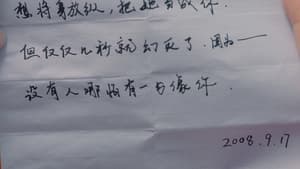 想将身放纵，把她当成你．
但仅仅几秒就幻灭了．因为——
没有人哪怕有一占像你．
2008.9.17